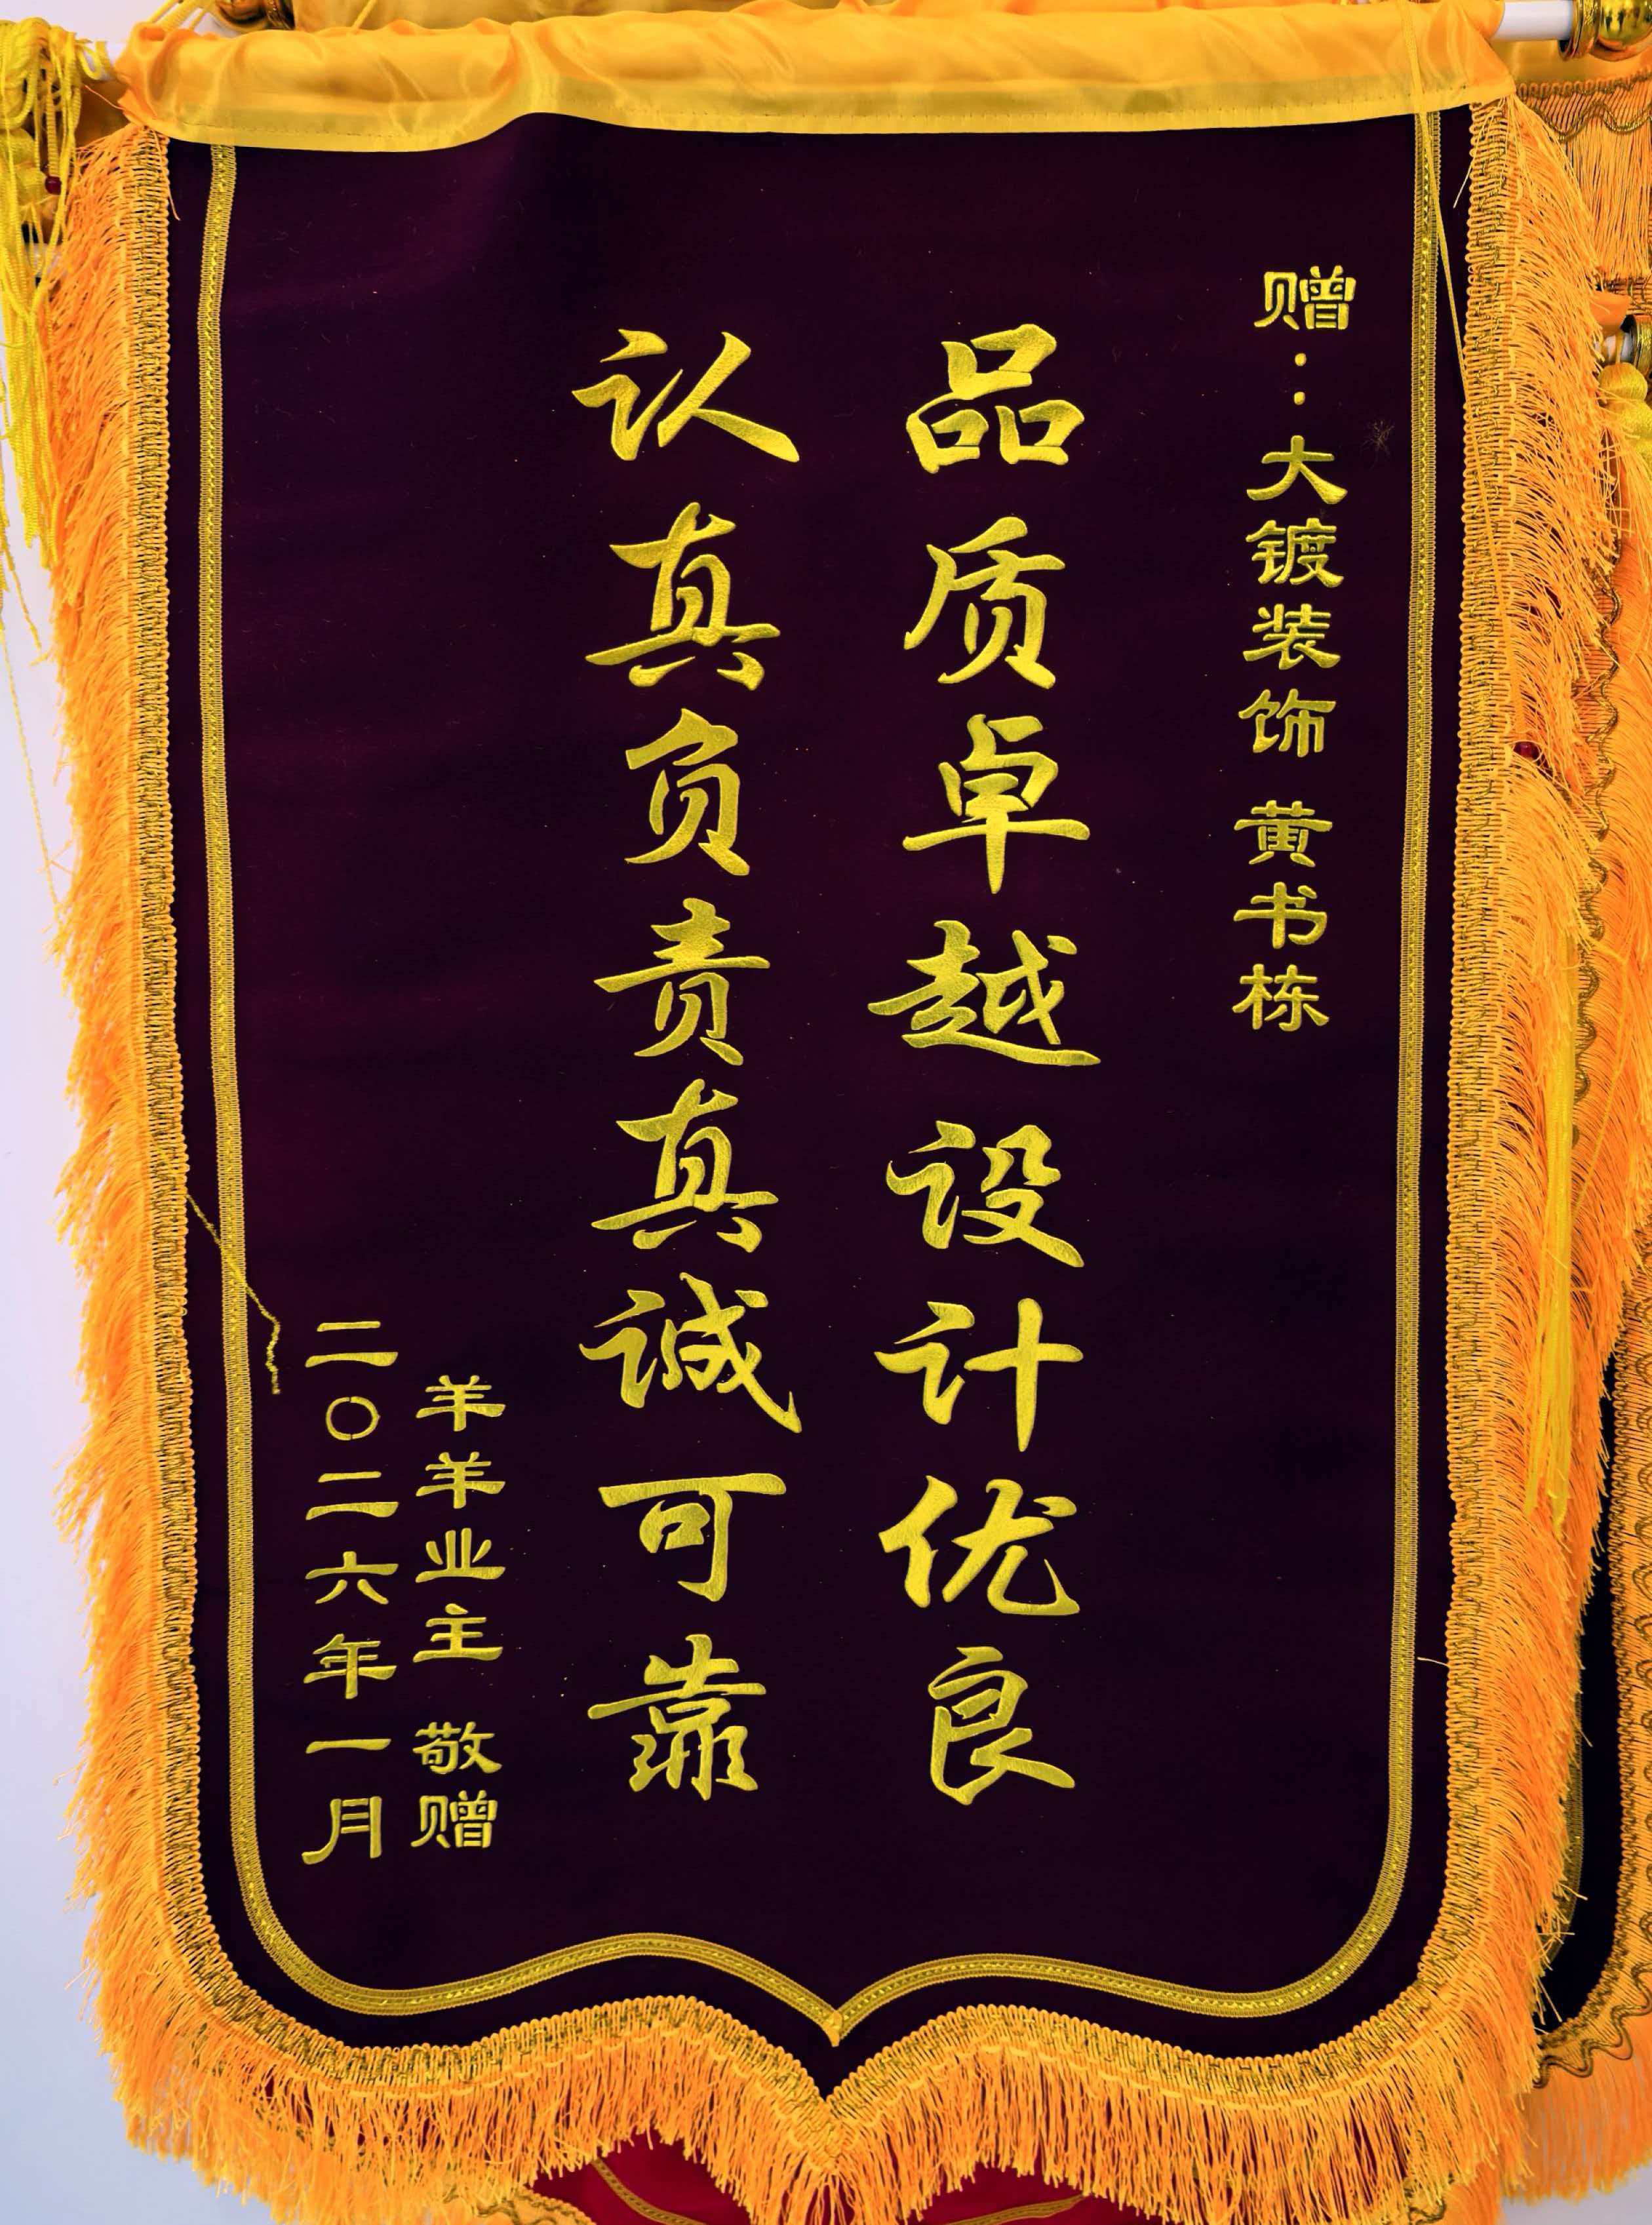 赠：大镀装饰 黄书栋
品质卓越设计优良
认真负责真诚可靠
羊羊业主 敬赠
二〇二六年一月